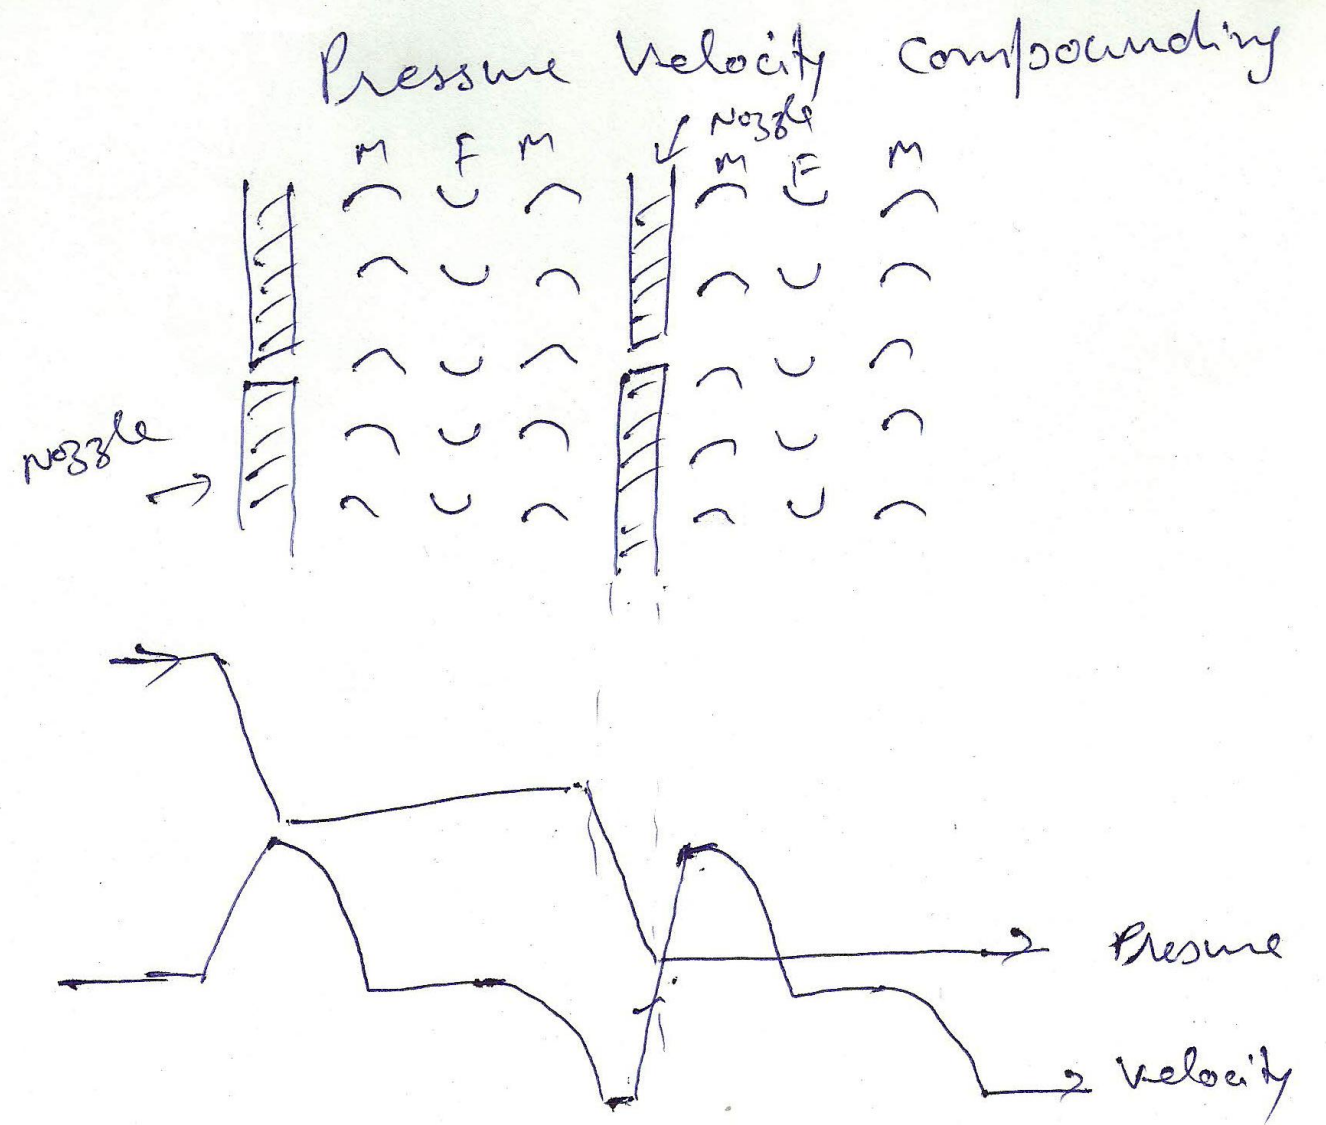 Pressure Velocity Compounding
Nozzle
M F M M F M
Nozzle
Pressure
Velocity